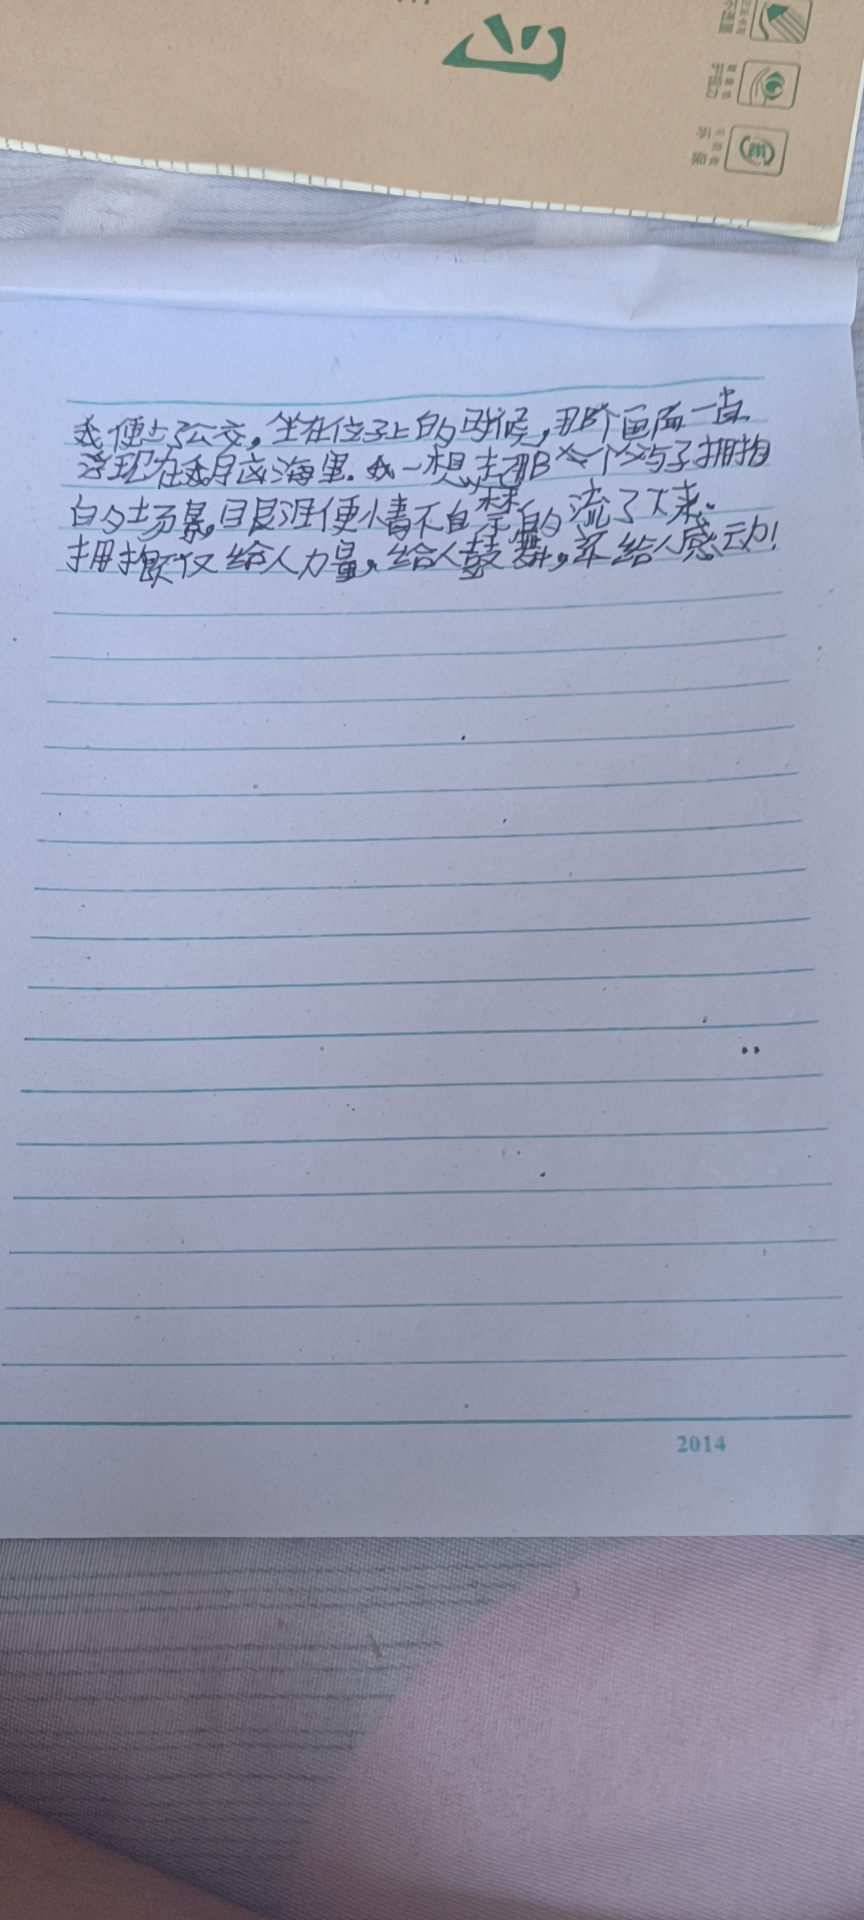 我便上了公交，坐在位子上的时候，那个画面一直
浮现在我脑海里.我一想起那个父与子拥抱
的场景，眼泪便情不自禁的流了下来.
拥抱不仅给人力量，给人鼓舞，还给人感动！
2014